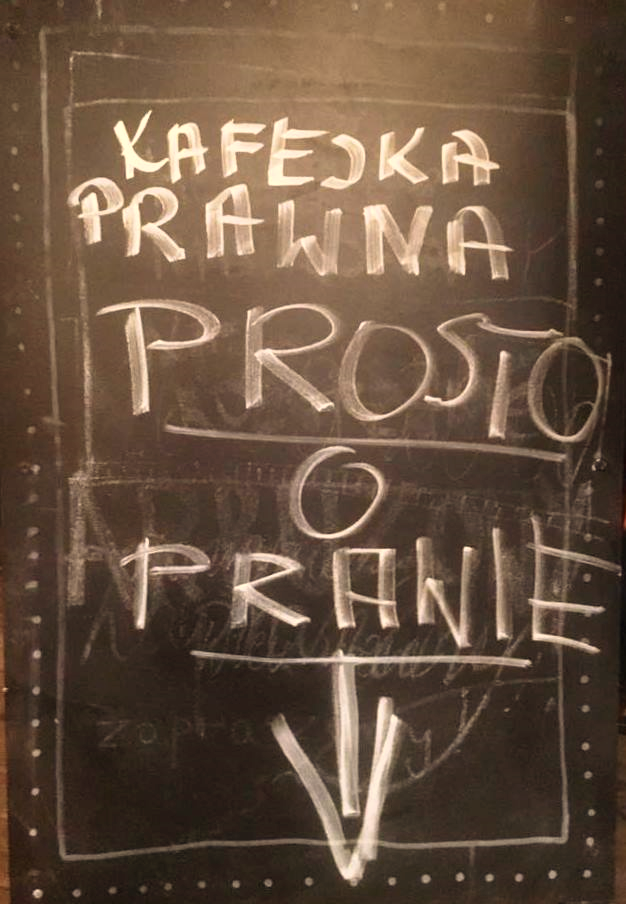 KAFEJKA
PRAWNA
PROSTO
O
PRAWIE